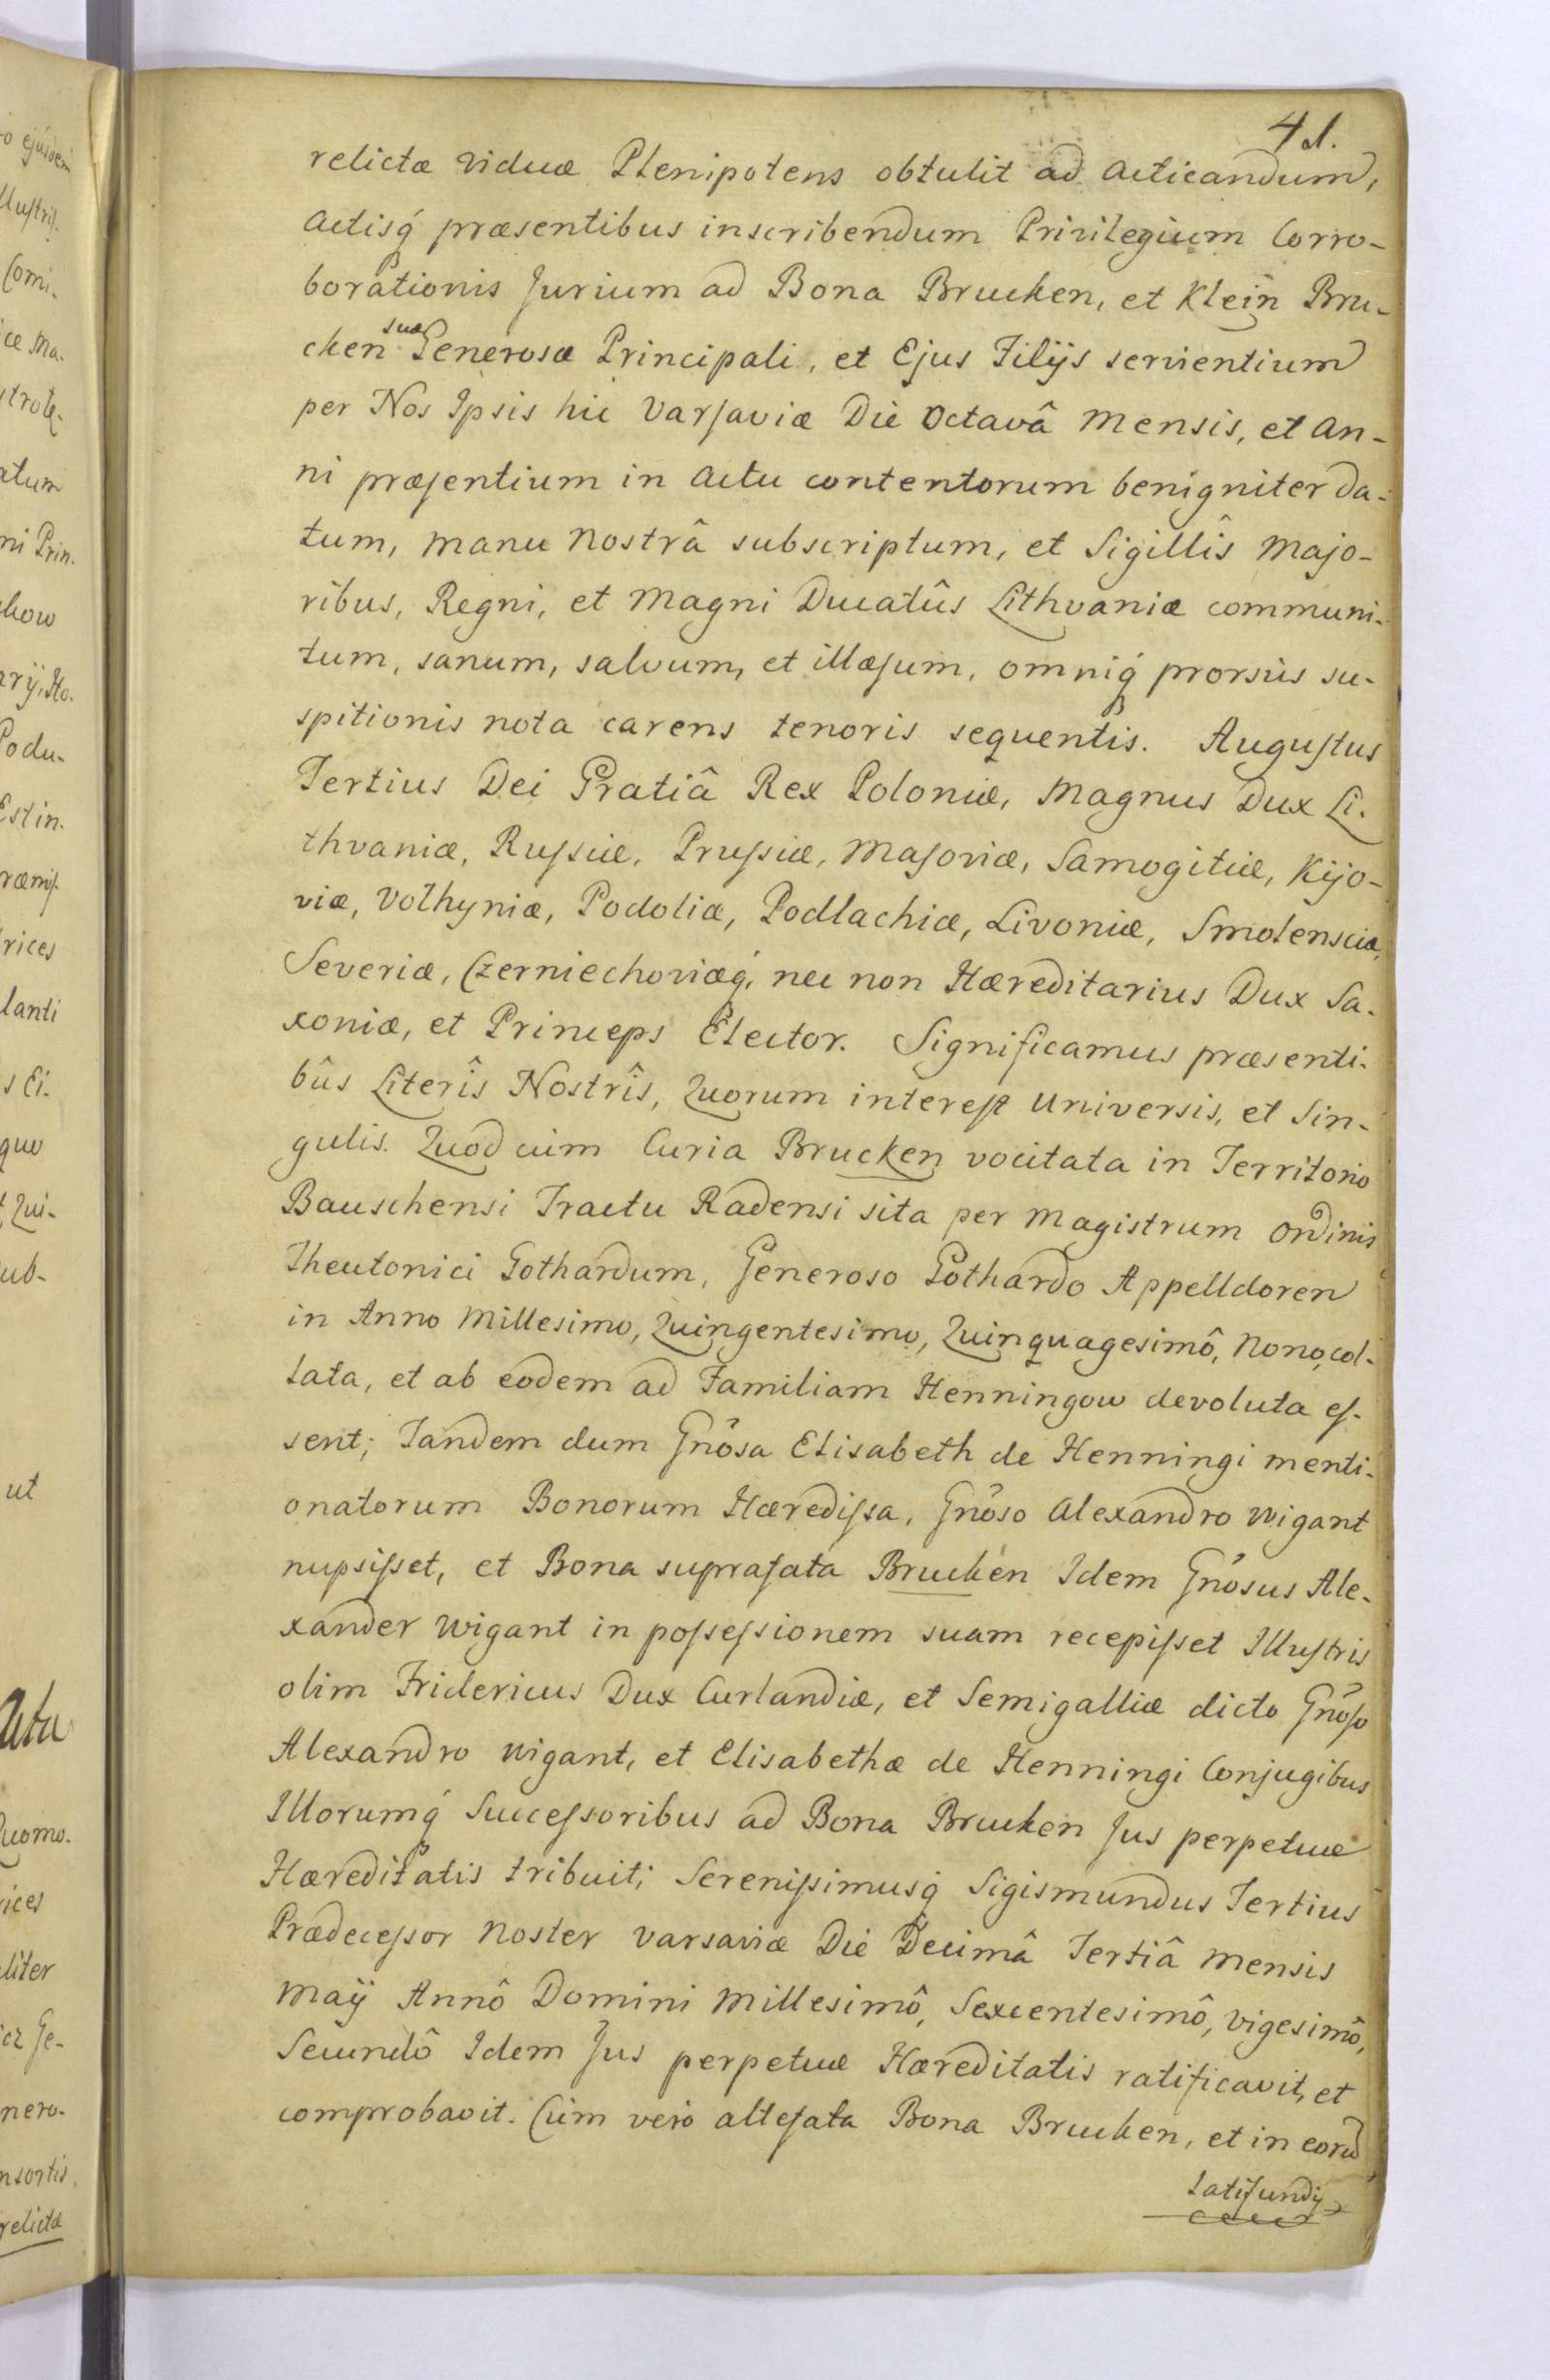 41.
relictæ viduæ Plenipotens obtulit ad acticandum,
actisq́ præsentibus inscribendum Privilegium Corro-
borationis Jurium ad Bona Brucken, et Klein Bru-
cken suæ Generosæ Principali, et Ejus Filijs servientium
per Nos Ipsis hic Varsaviæ Die Octavâ mensis, et an-
ni præsentium in actu contentorum benigniter da-
tum, manu nostrâ subscriptum, et Sigillîs majo-
ribus, Regni, et magni Ducatûs Lithvaniæ communi-
tum, sanum, salvum, et illæsum, omniq́ prorsùs su-
spitionis nota carens tenoris sequentis. Augustus
Tertius Dei Gratiâ Rex Poloniæ, magnus Dux Li-
thvaniæ, Russiæ, Prussiæ, Masoviæ, Samogitiæ, Kijo-
viæ, Volhyniæ, Podoliæ, Podlachiæ, Livoniæ, Smolensciæ,
Severiæ, Czerniechoviæq́, nec non Hæreditarius Dux Sa-
xoniæ, et Princeps Elector. Significamus præsenti-
bûs Literîs Nostrîs, Quorum interest universis, et Sin-
gulis. Quod cùm Curia Brucken vocitata in Territorio
Bauschensi Tractu Radensi sita per magistrum ordinis
Theutonici Gothardum, Generoso Gothardo Appelldoren
in Anno millesimo, Quingentesimo, Quinquagesimô, nono, col-
lata, et ab eodem ad Familiam Henningow devoluta es-
sent; Tandem dum Gnõsa Elisabeth de Henningi menti-
onatorum Bonorum Hæredissa, Gnõso Alexandro wigant
nupsisset, et Bona suprafata Brucken Idem Gnõsus Ale-
xander wigant in possessionem suam recepisset Illustris
olim Fridericus Dux Curlandiæ, et Semigalliæ dicto Gnõso
Alexandro wigant, et Elisabethæ de Henningi Conjugibus
Illorumq́ Successoribus ad Bona Brucken Jus perpetuæ
Hæreditatis tribuit; Serenissimusq́ Sigismundus Tertius
Prædecessor noster varsaviæ Die Decimâ Tertiâ mensis
maÿ Annô Domini millesimô, Sexcentesimô, vigesimô,
Secundô Idem Jus perpetuæ Hæreditatis ratificavit, et
comprobavit. Cùm verò altefata Bona Brucken, et in eorũ
latifundij
o ejusdem
llustris.
Comi-
ce Ma-
atum
ni Prin-
how
Podu-
Estin-
rices
lanti
s Ei-
quo
Qui-
ub-
ut
Actu
Quomo-
rices
liter
Ge-
nero-
nsortis
relictæ